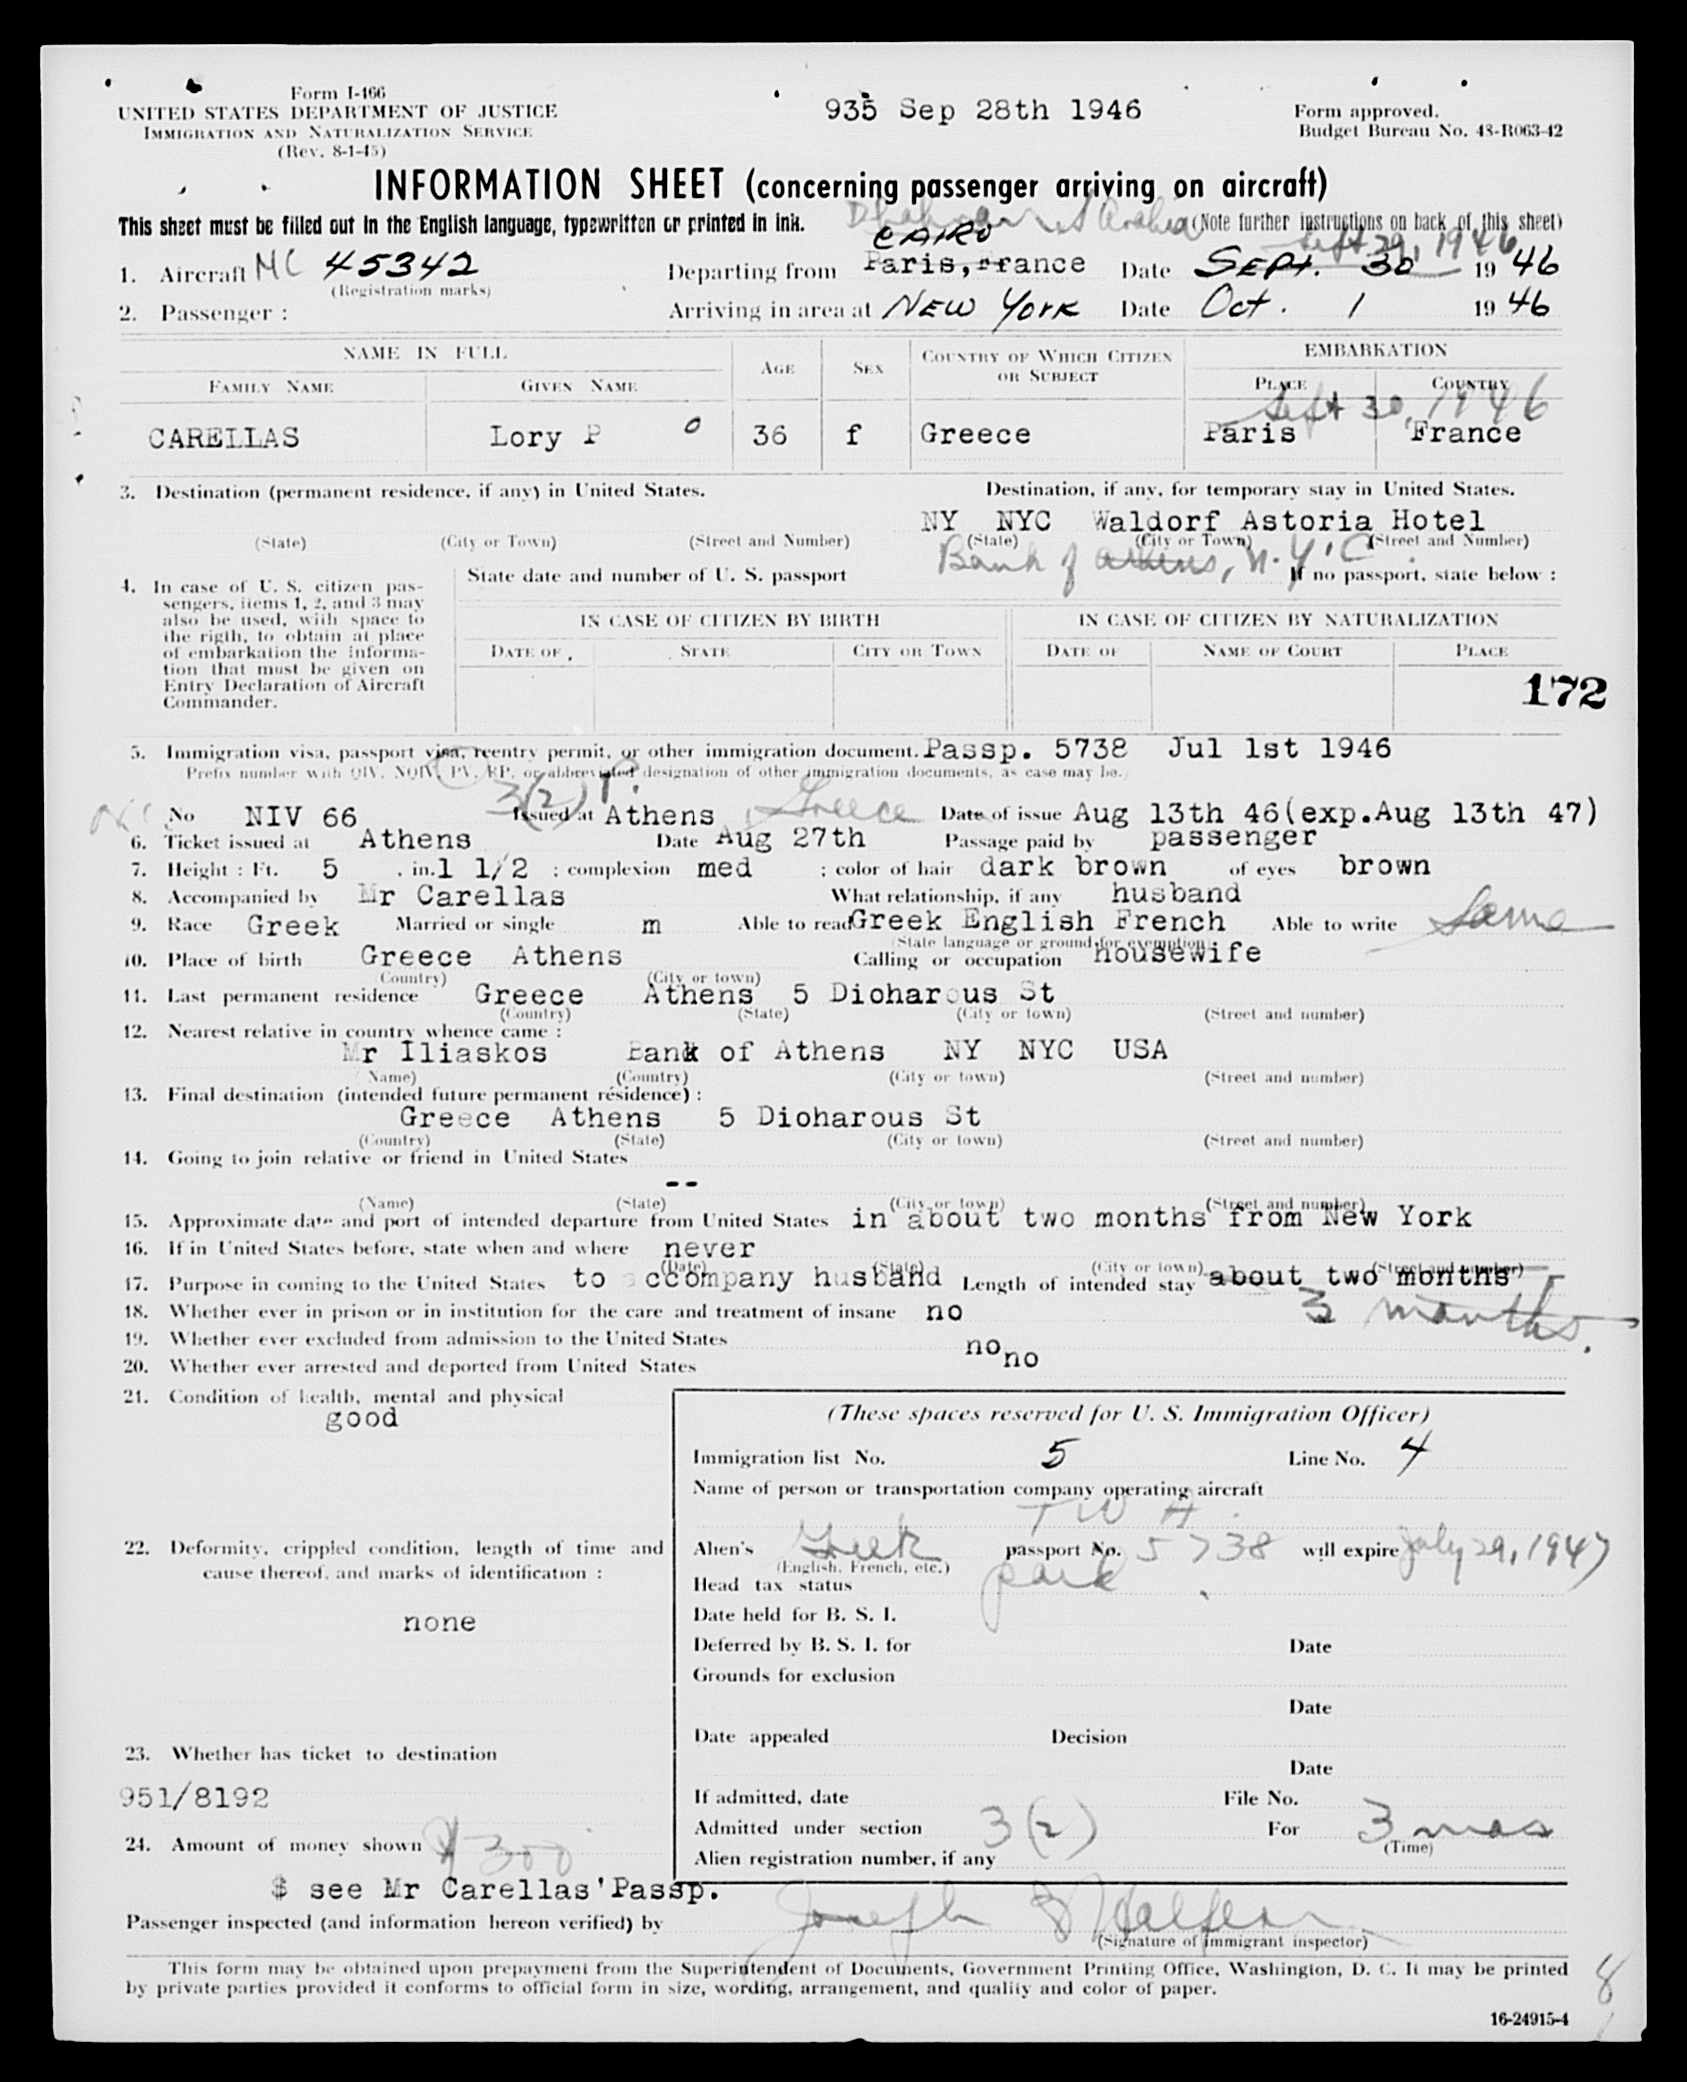 Form I-466
UNITED STATES DEPARTMENT OF JUSTICE
IMMIGRATION AND NATURALIZATION SERVICE
(Rev. 8-1-45)
935 Sep 28th 1946
Form approved.
Budget Bureau No. 43-R063-42
INFORMATION SHEET (concerning passenger arriving on aircraft)
This sheet must be filled out in the English language, typewritten or printed in ink.
Dhahran S Arabia
(Note further instructions on back of this sheet)
CAIRO
Sept 29, 1946
1. Aircraft NC 45342 Departing from Paris, France Date SEPT. 30 1946
(Registration marks)
2. Passenger : Arriving in area at NEW YORK Date Oct. 1 1946
NAME IN FULL AGE SEX COUNTRY OF WHICH CITIZEN OR SUBJECT EMBARKATION
FAMILY NAME GIVEN NAME PLACE COUNTRY
Sept 30, 1946
CARELLAS Lory P 0 36 f Greece Paris France
3. Destination (permanent residence, if any) in United States. Destination, if any, for temporary stay in United States.
NY NYC Waldorf Astoria Hotel
(State) (City or Town) (Street and Number) (State) (City or Town) (Street and Number)
Bank of Athens, N.Y.C.
4. In case of U. S. citizen pas-
sengers, items 1, 2, and 3 may
also be used, with space to
the rigth, to obtain at place
of embarkation the informa-
tion that must be given on
Entry Declaration of Aircraft
Commander.
State date and number of U. S. passport If no passport, state below :
IN CASE OF CITIZEN BY BIRTH IN CASE OF CITIZEN BY NATURALIZATION
DATE OF STATE CITY OR TOWN DATE OF NAME OF COURT PLACE
172
5. Immigration visa, passport visa, reentry permit, or other immigration document. Passp. 5738 Jul 1st 1946
Prefix number with QIV, NQIV, PV, RP, or abbreviated designation of other immigration documents, as case may be.
3(2) P.
No NIV 66 Issued at Athens Greece Date of issue Aug 13th 46(exp.Aug 13th 47)
6. Ticket issued at Athens Date Aug 27th Passage paid by passenger
7. Height : Ft. 5 . in. 1 1/2 ; complexion med ; color of hair dark brown of eyes brown
8. Accompanied by Mr Carellas What relationship, if any husband
9. Race Greek Married or single m Able to read Greek English French Able to write Same
(State language or ground for exemption)
10. Place of birth Greece Athens Calling or occupation housewife
(Country) (City or town)
11. Last permanent residence Greece Athens 5 Dioharous St
(Country) (State) (City or town) (Street and number)
12. Nearest relative in country whence came :
Mr Iliaskos Bank of Athens NY NYC USA
(Name) (Country) (City or town) (Street and number)
13. Final destination (intended future permanent résidence) :
Greece Athens 5 Dioharous St
(Country) (State) (City or town) (Street and number)
14. Going to join relative or friend in United States
--
(Name) (State) (City or town) (Street and number)
15. Approximate date and port of intended departure from United States in about two months from New York
16. If in United States before, state when and where never
(Date) (State) (City or town) (Street and number)
17. Purpose in coming to the United States to accompany husband Length of intended stay about two months
3 months.
18. Whether ever in prison or in institution for the care and treatment of insane no
19. Whether ever excluded from admission to the United States no
20. Whether ever arrested and deported from United States no
21. Condition of health, mental and physical
good
22. Deformity, crippled condition, length of time and
cause thereof, and marks of identification :
none
23. Whether has ticket to destination
951/8192
24. Amount of money shown $300
$ see Mr Carellas'Passp.
(These spaces reserved for U. S. Immigration Officer)
Immigration list No. 5 Line No. 4
Name of person or transportation company operating aircraft
TWA
Alien's Greek passport No. 5738 will expire July 29, 1947
(English, French, etc.)
Head tax status paid
Date held for B. S. I.
Deferred by B. S. I. for Date
Grounds for exclusion
Date
Date appealed Decision
Date
If admitted, date File No.
Admitted under section 3(2) For 3 mos
(Time)
Alien registration number, if any
Passenger inspected (and information hereon verified) by Joseph
(Signature of immigrant inspector)
This form may be obtained upon prepayment from the Superintendent of Documents, Government Printing Office, Washington, D. C. It may be printed
by private parties provided it conforms to official form in size, wording, arrangement, and quality and color of paper.
8
16-24915-4